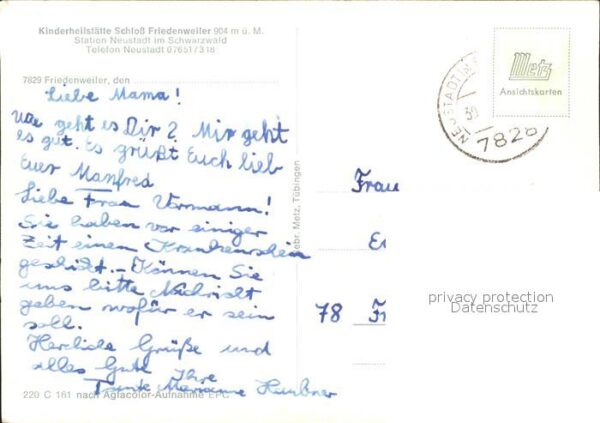 Kinderheilstätte Schloß Friedenweiler 904 m ü. M.
Station Neustadt im Schwarzwald
Telefon Neustadt 07651/318
7829 Friedenweiler, den
Liebe Mama!
Wie geht es Dir? Mir geht
es gut. Es grüßt Euch lieb
Euer Manfred
Liebe Frau
Sie haben vor einiger
Zeit einen Krankenschein
geschickt. – Können Sie
uns bitte Nachricht
geben wofür er sein
soll.
Herzliche Grüße und
alles Gute Ihre
Tante Marianne
220 C 161 nach Agfacolor-Aufnahme EFC
Gebr. Metz, Tübingen
NEUSTADT
7820
Metz
Ansichtskarten
Frau
78
privacy protection
Datenschutz